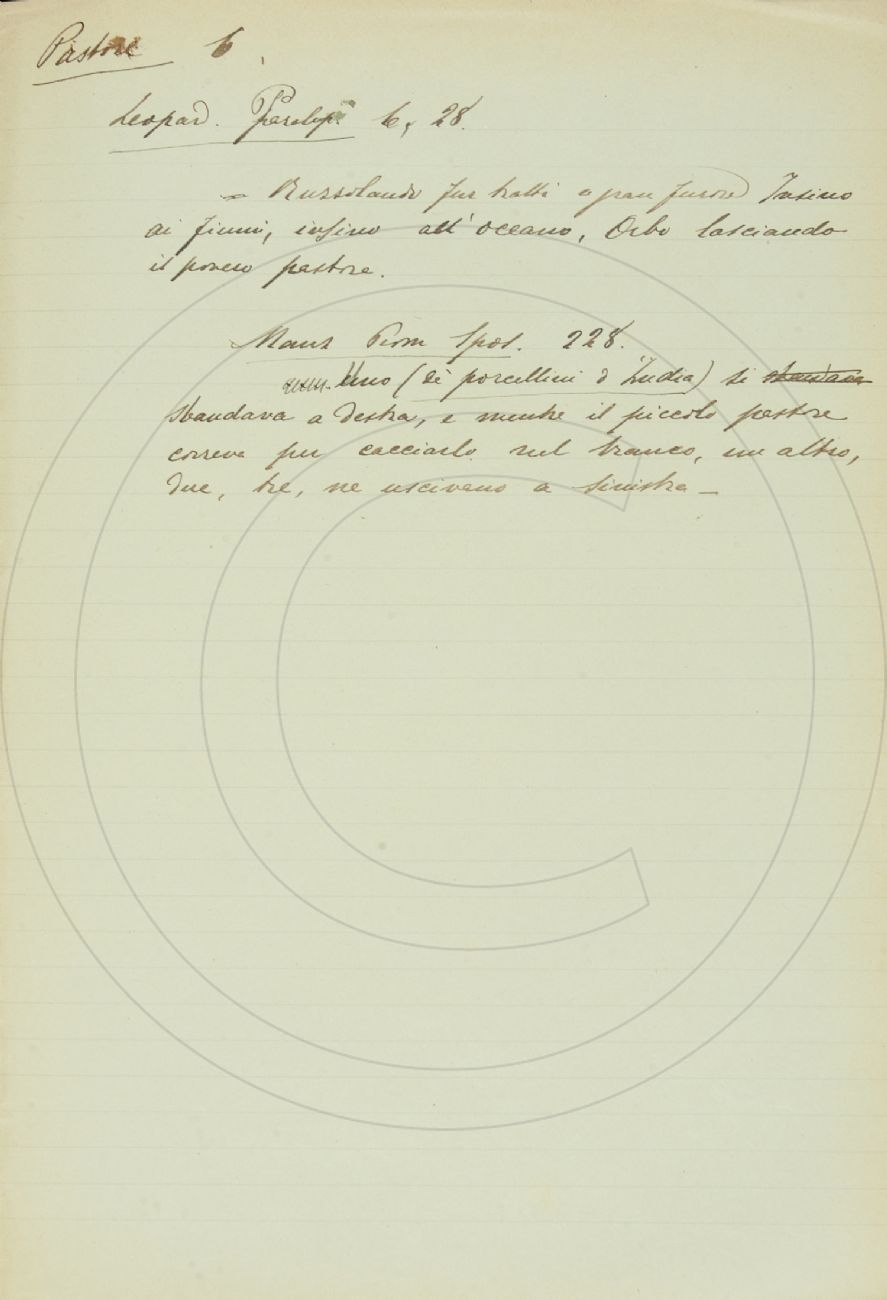 Pastore 6.
Leopard. Paralip. 6, 28.
– Ruzzolando fur tratti a gran furore Insino
ai fiumi, insino all' oceano, Orbo lasciando
il povero pastore.
Manz Prom Spos. 228.
Uno (di porcellini d'India) si sbandava
sbandava a destra, e mentre il piccolo pastore
correva per cacciarlo nel branco, un altro,
due, tre, ne uscivano a sinistra –